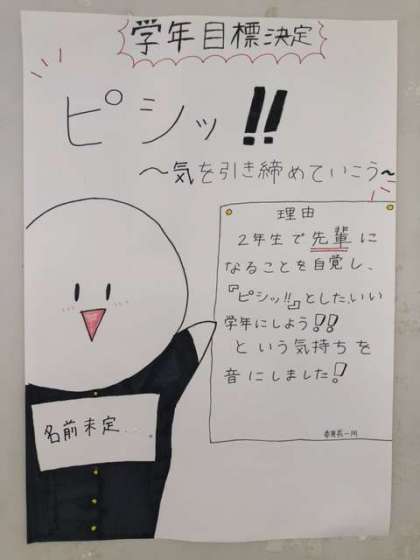 学年目標決定
ピシッ!!
〜気を引き締めていこう〜
理由
2年生で先輩に
なることを自覚し、
『ピシッ!!』としたいい
学年にしよう!!
という気持ちを
音にしました!
名前未定...
委員長一同